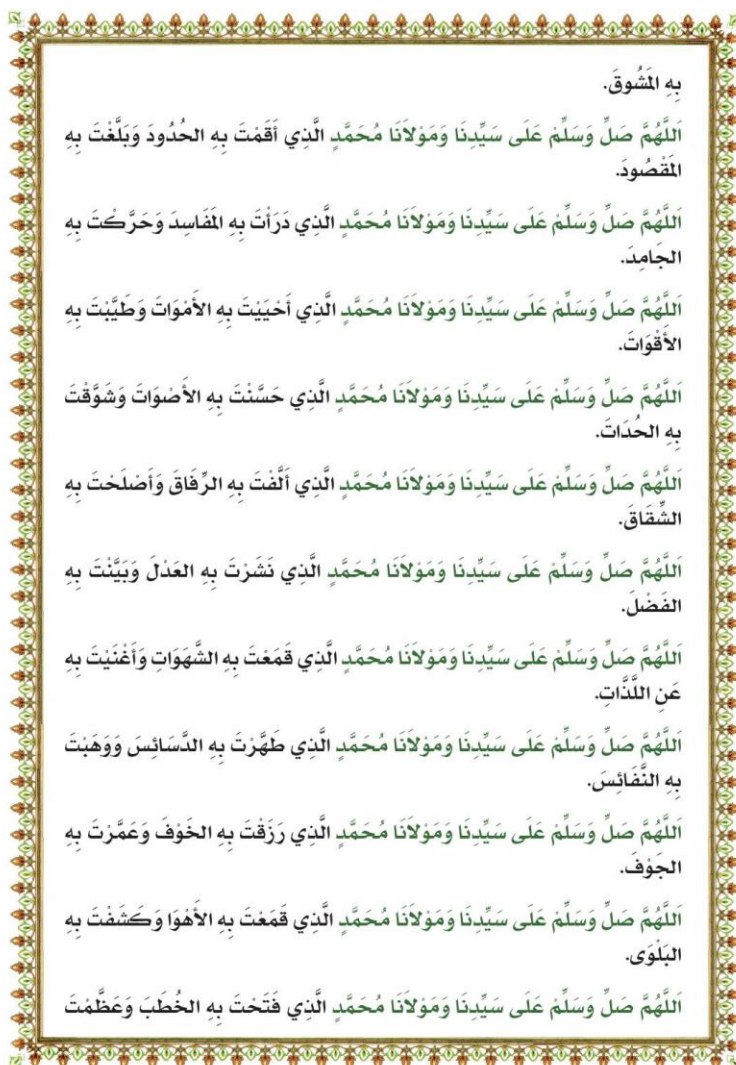 بِهِ المَشُوقَ.
اَللَّهُمَّ صَلِّ وَسَلِّمْ عَلَى سَيِّدِنَا وَمَوْلَانَا مُحَمَّدٍ الَّذِي أَقَمْتَ بِهِ الحُدُودَ وَبَلَّغْتَ بِهِ
المَقْصُودَ.
اَللَّهُمَّ صَلِّ وَسَلِّمْ عَلَى سَيِّدِنَا وَمَوْلَانَا مُحَمَّدٍ الَّذِي دَرَأْتَ بِهِ المَفَاسِدَ وَحَرَّكْتَ بِهِ
الجَامِدَ.
اَللَّهُمَّ صَلِّ وَسَلِّمْ عَلَى سَيِّدِنَا وَمَوْلَانَا مُحَمَّدٍ الَّذِي أَحْيَيْتَ بِهِ الأَمْوَاتَ وَطَيَّبْتَ بِهِ
الأَقْوَاتَ.
اَللَّهُمَّ صَلِّ وَسَلِّمْ عَلَى سَيِّدِنَا وَمَوْلَانَا مُحَمَّدٍ الَّذِي حَسَّنْتَ بِهِ الأَصْوَاتَ وَشَوَّقْتَ
بِهِ الحُدَاتَ.
اَللَّهُمَّ صَلِّ وَسَلِّمْ عَلَى سَيِّدِنَا وَمَوْلَانَا مُحَمَّدٍ الَّذِي أَلَّفْتَ بِهِ الرِّفَاقَ وَأَصْلَحْتَ بِهِ
الشِّقَاقَ.
اَللَّهُمَّ صَلِّ وَسَلِّمْ عَلَى سَيِّدِنَا وَمَوْلَانَا مُحَمَّدٍ الَّذِي نَشَرْتَ بِهِ العَدْلَ وَبَيَّنْتَ بِهِ
الفَضْلَ.
اَللَّهُمَّ صَلِّ وَسَلِّمْ عَلَى سَيِّدِنَا وَمَوْلَانَا مُحَمَّدٍ الَّذِي قَمَعْتَ بِهِ الشَّهَوَاتِ وَأَغْنَيْتَ بِهِ
عَنِ اللَّذَّاتِ.
اَللَّهُمَّ صَلِّ وَسَلِّمْ عَلَى سَيِّدِنَا وَمَوْلَانَا مُحَمَّدٍ الَّذِي طَهَّرْتَ بِهِ الدَّسَائِسَ وَوَهَبْتَ
بِهِ النَّفَائِسَ.
اَللَّهُمَّ صَلِّ وَسَلِّمْ عَلَى سَيِّدِنَا وَمَوْلَانَا مُحَمَّدٍ الَّذِي رَزَقْتَ بِهِ الخَوْفَ وَعَمَّرْتَ بِهِ
الجَوْفَ.
اَللَّهُمَّ صَلِّ وَسَلِّمْ عَلَى سَيِّدِنَا وَمَوْلَانَا مُحَمَّدٍ الَّذِي قَمَعْتَ بِهِ الأَهْوَا وَكَشَفْتَ بِهِ
البَلْوَى.
اَللَّهُمَّ صَلِّ وَسَلِّمْ عَلَى سَيِّدِنَا وَمَوْلَانَا مُحَمَّدٍ الَّذِي فَتَحْتَ بِهِ الخُطَبَ وَعَظَّمْتَ